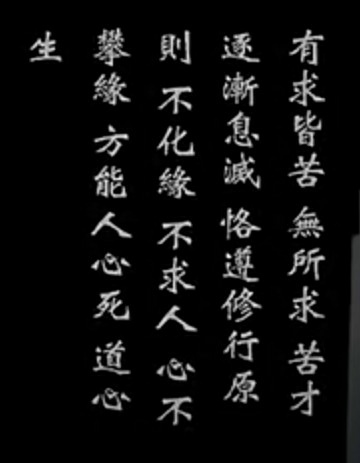 有求皆苦 無所求 苦才
逐漸息滅 恪遵修行原
則 不化緣 不求人 心不
攀緣 方能人心死 道心
生